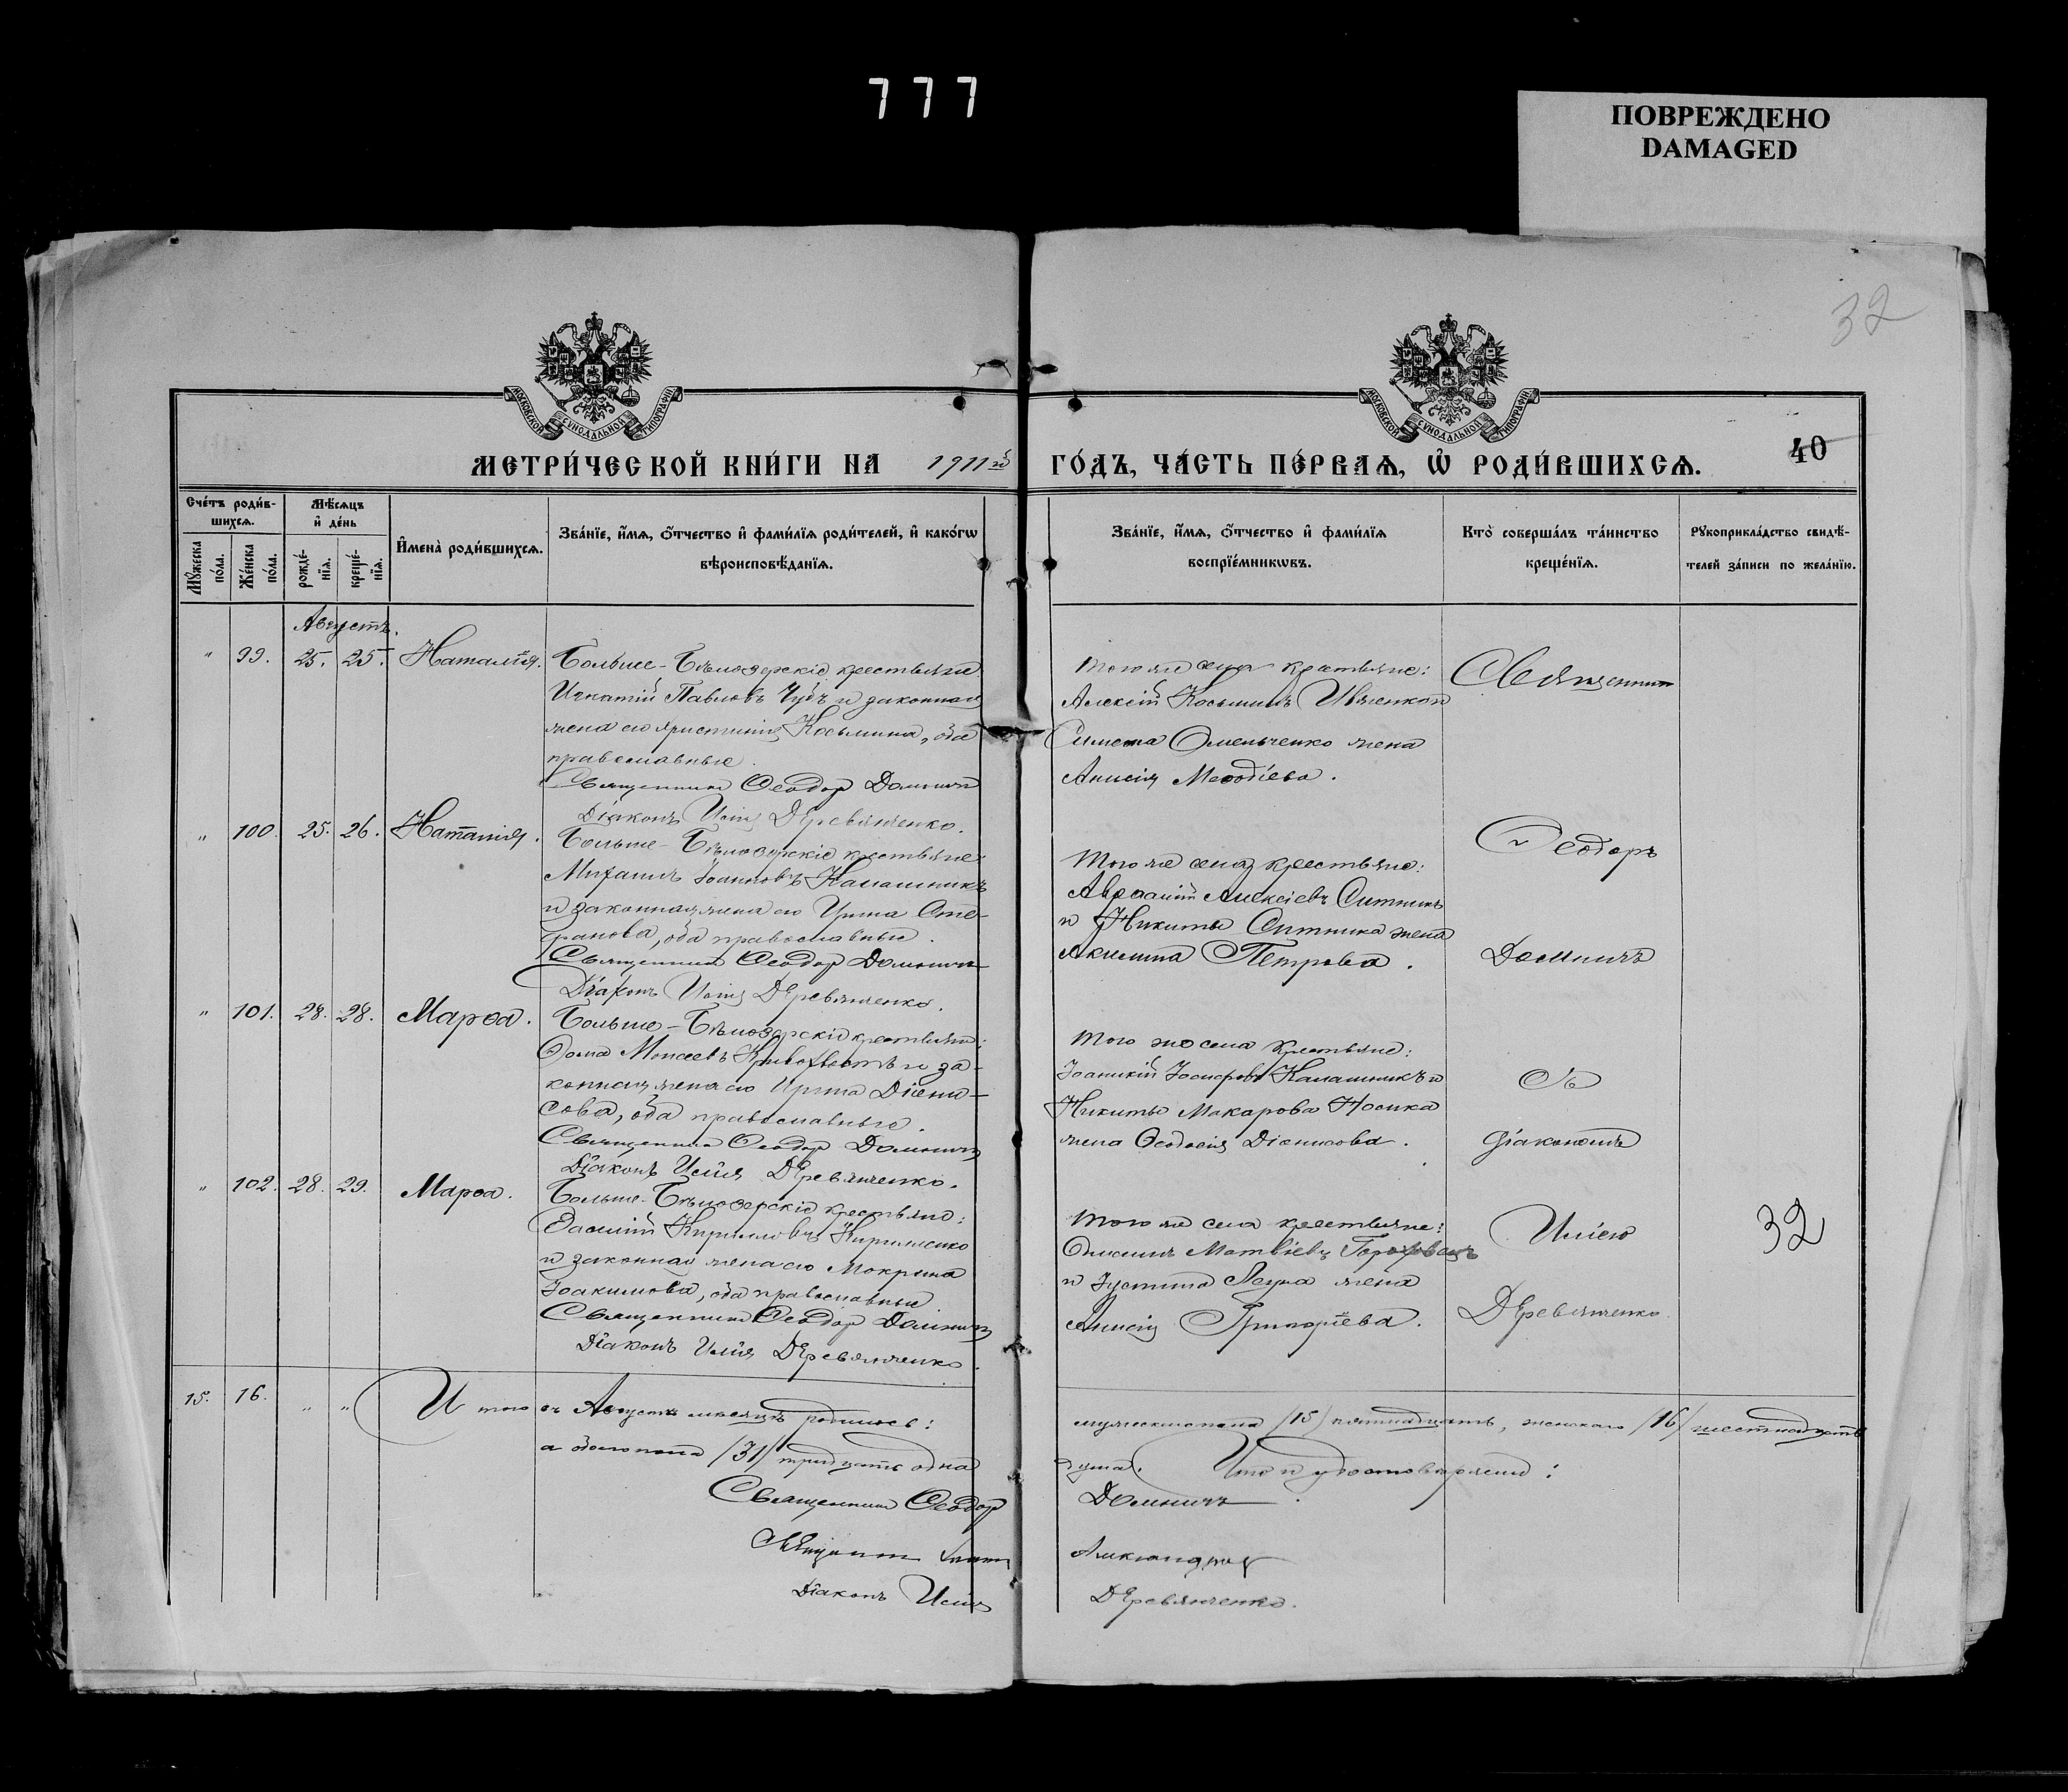 777
ПОВРЕЖДЕНО
DAMAGED
32
МОСКОВСКОЙ СѴНОДАЛЬНОЙ ТИПОГРАФІИ
МОСКОВСКОЙ СѴНОДАЛЬНОЙ ТИПОГРАФІИ
МЕТРИ́ЧЕСКОЙ КНИ́ГИ НА 1911й ГО́ДЪ, ЧА́СТЬ ПЕ́РВАѦ, Ѡ РОДИ́ВШИХСѦ.
40
Сче́тъ роди́в-
шихсѧ.
Мꙋ́жеска по́ла.
Же́нска по́ла.
Мѣ́сѧцъ
и҆ де́нь
рожде́-
нїѧ.
креще́-
нїѧ.
И҆мена̀ роди́вшихсѧ.
Зва́нїе, и҆́мѧ, ѻ҆́тчество и҆ фами́лїѧ роди́телей, и҆ како́гѡ
вѣроисповѣ́данїѧ.
Зва́нїе, и҆́мѧ, ѻ҆́тчество и҆ фами́лїѧ
воспрїе́мникѡвъ.
Кто̀ соверша́лъ та́инство
креще́нїѧ.
Рꙋкоприкла́дство свидѣ́-
телей за́писи по жела́нїю.
Августъ.
" 99. 25. 25. Наталія. Больше-Бѣлозерскіе крестьяне
Игнатій Павловъ Чубъ и законная
жена его Христинія Косьмина, оба
православные.
Священникъ Ѳеодоръ Домничъ
Діаконъ Илія Деревянченко.
Того же села крестьяне:
Алексій Косьминъ Ивченко и
Омельченко жена
Анисія Меѳодіева.
Священникъ
" 100. 25. 26. Наталія. Больше-Бѣлозерскіе крестьяне:
Михаилъ Іоанновъ Калашникъ
и законная жена его Ирина Сте-
фанова, оба православные.
Священникъ Ѳеодоръ Домничъ
Діаконъ Илія Деревянченко.
Того же села крестьяне:
Алексіевъ Ситникъ
и Никиты Ситника жена
Акилина Петрова.
Ѳеодоръ
Домничъ
" 101. 28. 28. Марѳа. Больше-Бѣлозерскіе крестьяне:
Ѳома Моисеевъ Кривохвостъ и за-
конная жена его Ирина Діони-
сова, оба православные.
Священникъ Ѳеодоръ Домничъ
Діаконъ Илія Деревянченко.
Того же села крестьяне:
Іоаникій Іосифовъ Калашникъ и
Никиты Макарова Носика
жена Ѳеодосія Діонисова.
съ
діакономъ
" 102. 28. 29. Марѳа. Больше-Бѣлозерскіе крестьяне:
Василій Кирилловъ Кириленко
и законная жена его Мокрина
Іоакимова, оба православные.
Священникъ Ѳеодоръ Домничъ
Діаконъ Илія Деревянченко.
Того же села крестьяне:
Матвіевъ Гороховецъ
и Іустина жена
Анисія Григоріева.
Иліею
Деревянченко.
32
15. 16. " " Итого въ Августѣ мѣсяцѣ родилось: мужескаго пола /15/ пятнадцать, женскаго /16/ шестнадцать
а обоего пола /31/ тридцать одна душа. Что и удостовѣряемъ:
Священникъ Ѳеодоръ Домничъ
Священникъ Александровъ
Діаконъ Илія Деревянченко.